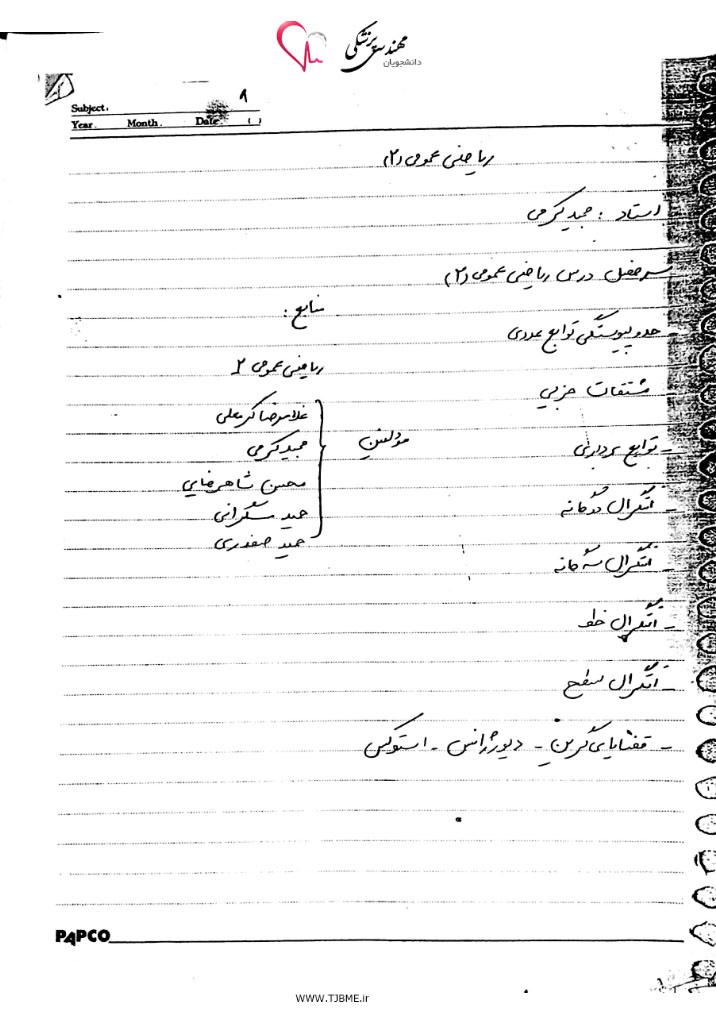 مهندسی پزشکی
دانشجویان
Subject.
Year. Month. Date. ( )
ریاضی عمومی (۲)
استاد : مجید کرمی
سرفصل درس ریاضی عمومی (۲)
منابع :
- حد و پیوستگی توابع عددی
ریاضی عمومی ۲
مشتقات جزیی
غلامرضا کرمعلی
- توابع برداری
مولفین
مجید کرمی
محسن شاهرضایی
- انتگرال دوگانه
حمید شکرانی
- انتگرال سه گانه
حمید صفدری
- انتگرال خط
- انتگرال سطح
- قضایای گرین - دیورژانس - استوکس
PAPCO
WWW.TJBME.ir